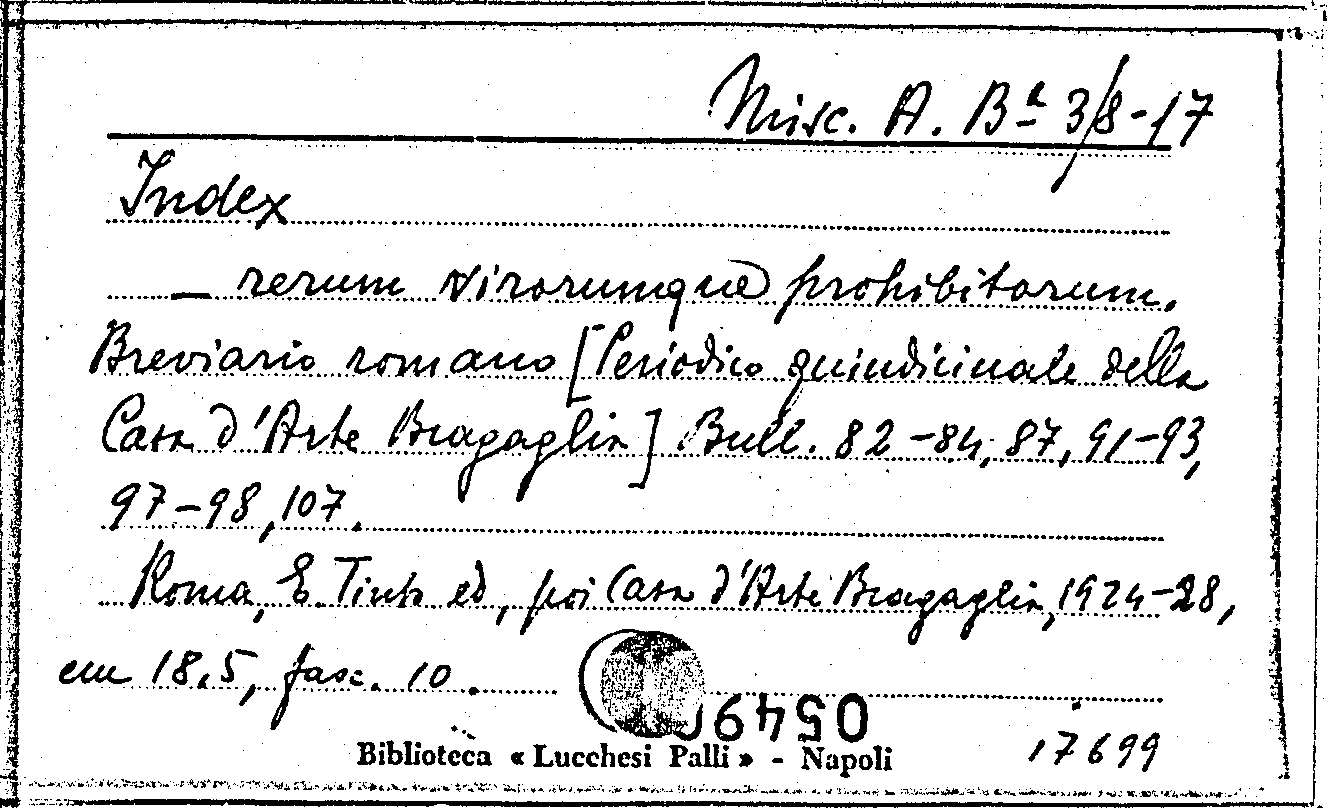 Misc. A. Bª 3/8-17
Index
— rerum virorumque prohibitorum.
Breviario romano [Periodico quindicinale della
Casa d'Arte Bragaglia] Bull. 82-84, 87, 91-93,
97-98, 107.
Roma, E. Tinto ed, poi Casa d'Arte Bragaglia, 1924-28,
cm 18.5, fasc. 10.
0549
Biblioteca « Lucchesi Palli » - Napoli
17699